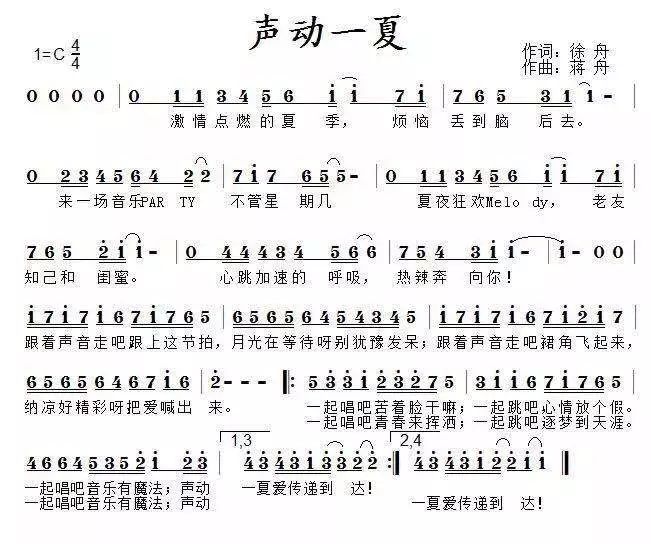 声动一夏
1=C 4/4
作词：徐 舟
作曲：蒋 舟
0 0 0 0 | 0 1 1 3 4 5 6 i i 7 i | 7 6 5 3 1 i - |
激情点燃的夏 季，烦恼 丢到脑 后去。
0 2 3 4 5 6 4 2 2 | 7 i 7 6 5 5 - | 0 1 1 3 4 5 6 i i 7 i |
来一场音乐PAR TY 不管星 期几 夏夜狂欢Melo dy，老友
7 6 5 2 i i - | 0 4 4 4 3 4 5 6 6 | 7 5 4 3 i i - | i - 0 0 |
知己和 闺蜜。 心跳加速的 呼吸，热辣奔 向你！
i 7 i 7 i 6 i 7 i 7 6 5 | 6 5 6 5 6 4 5 6 4 5 3 | i 7 i 7 i 6 7 i 2 i 7 i |
跟着声音走吧跟上这节拍，月光在等待呀别犹豫发呆；跟着声音走吧裙角飞起来，
6 5 6 5 6 4 6 7 i 6 | 2 - - - ‖: 5 3 3 i 2 3 2 7 5 | 4 6 6 4 5 3 5 i |
纳凉好精彩呀把爱喊出 来。 一起唱吧苦着脸干嘛；一起跳吧心情放个假。
一起唱吧青春来挥洒；一起跳吧逐梦到天涯。
1,3 2,4
4 6 6 4 5 3 5 2 i 2 3 | 4 3 4 3 i 3 3 2 2 :‖ 4 3 4 3 i 2 2 i i ‖
一起唱吧音乐有魔法；声动 一夏爱传递到 达！ 一夏爱传递到 达！
一起唱吧音乐有魔法；声动